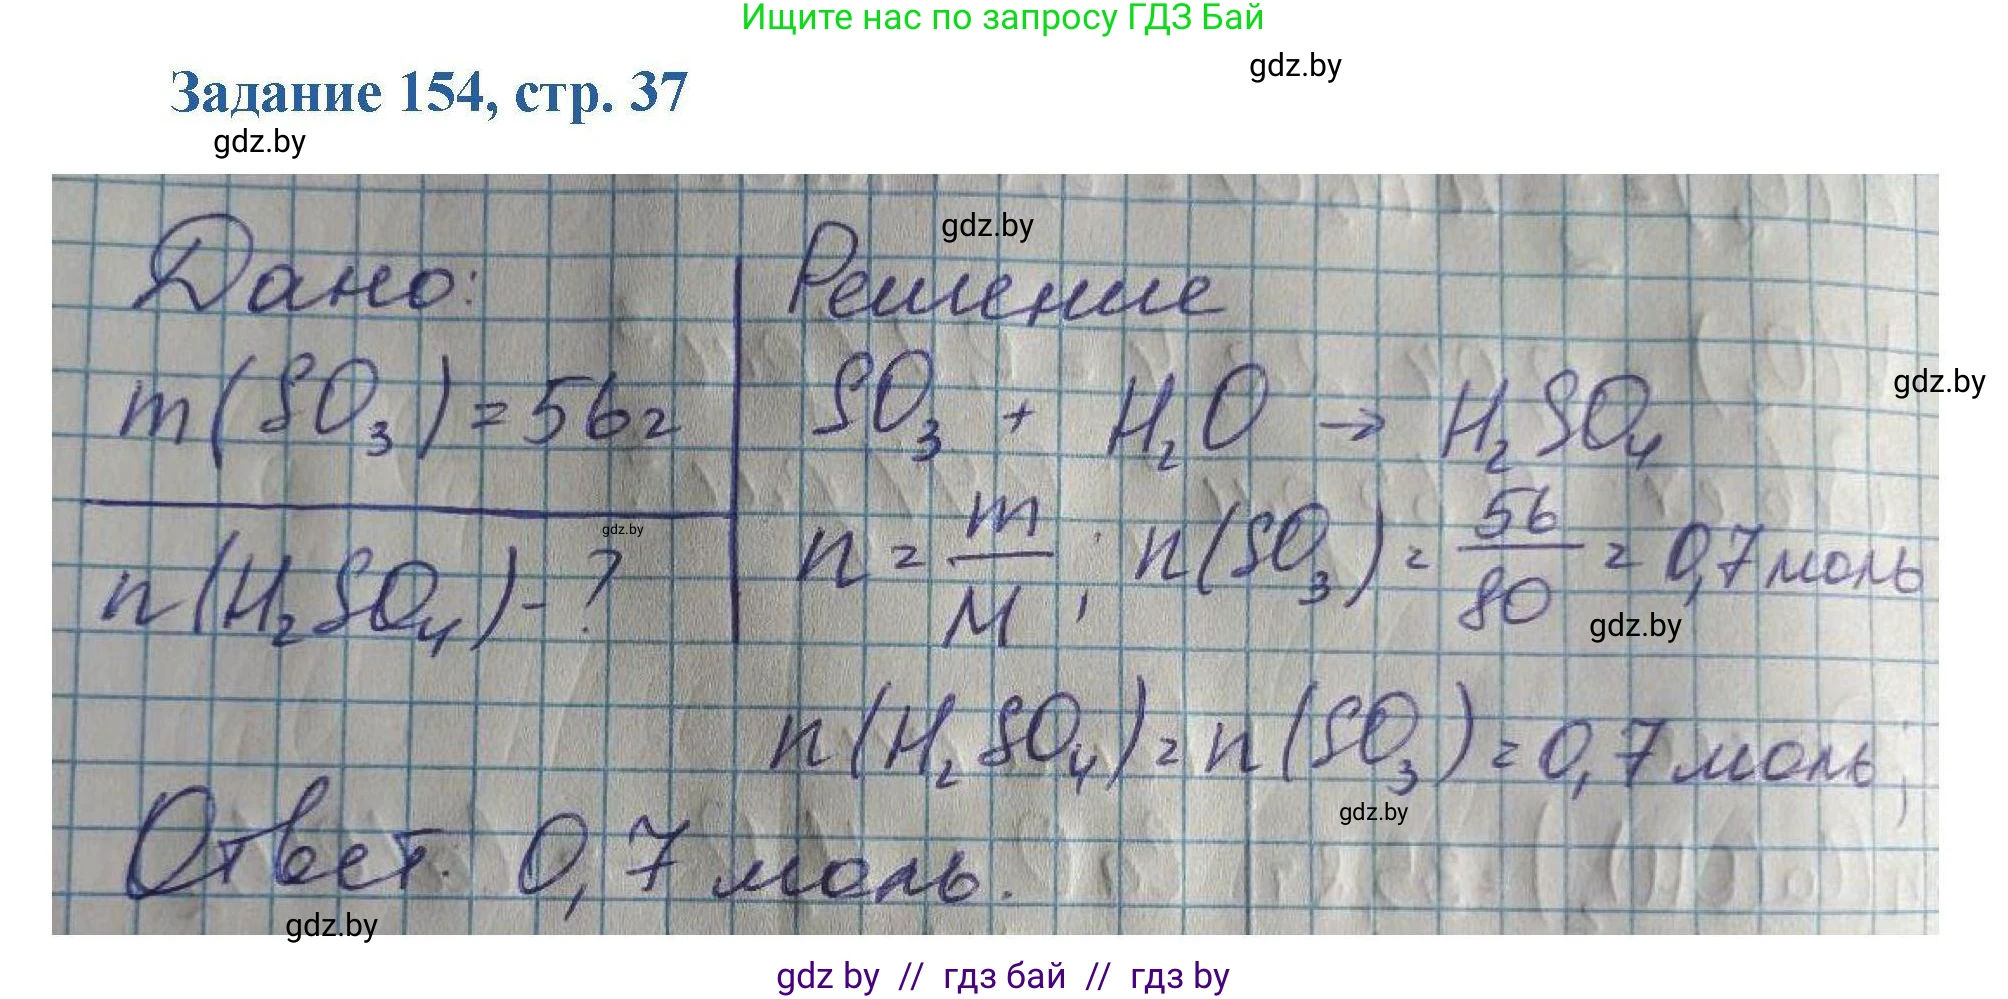 Ищите нас по запросу ГДЗ Бай
gdz.by
Задание 154, стр. 37
gdz.by
gdz.by
Дано:
Решение
m(SO₃) = 56г
SO₃ + H₂O → H₂SO₄
gdz.by
gdz.by
n = m/M; n(SO₃) = 56/80 = 0,7 моль
n(H₂SO₄) - ?
gdz.by
n(H₂SO₄) = n(SO₃) = 0,7 моль;
gdz.by
Ответ. 0,7 моль.
gdz.by
gdz by // гдз бай // гдз by